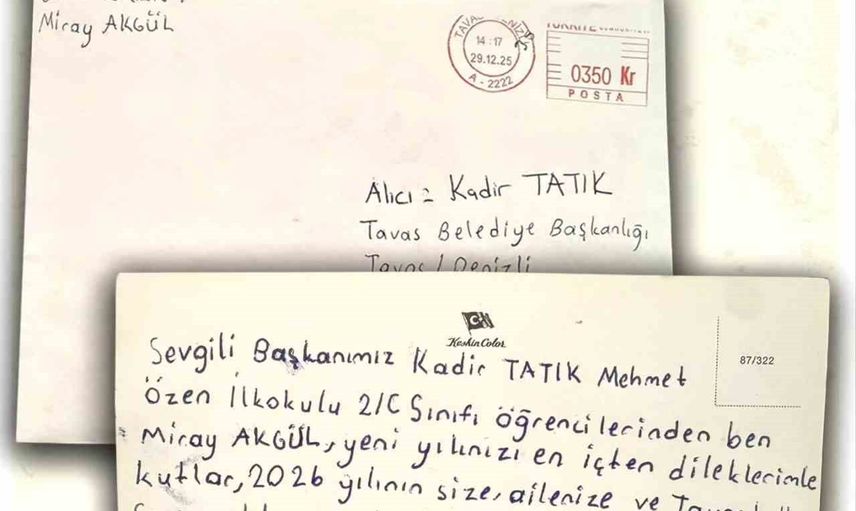 Miray AKGÜL
TAVAS
14:17
29.12.25
A-2222
0350 Kr
POSTA
Alıcı: Kadir TATIK
Tavas Belediye Başkanlığı
Tavas / Denizli
Keskin Color
87/322
Sevgili Başkanımız Kadir TATIK Mehmet
Özen İlkokulu 2/C Sınıfı öğrencilerinden ben
Miray AKGÜL, yeni yılınızı en içten dileklerimle
kutlar, 2026 yılının size, ailenize ve